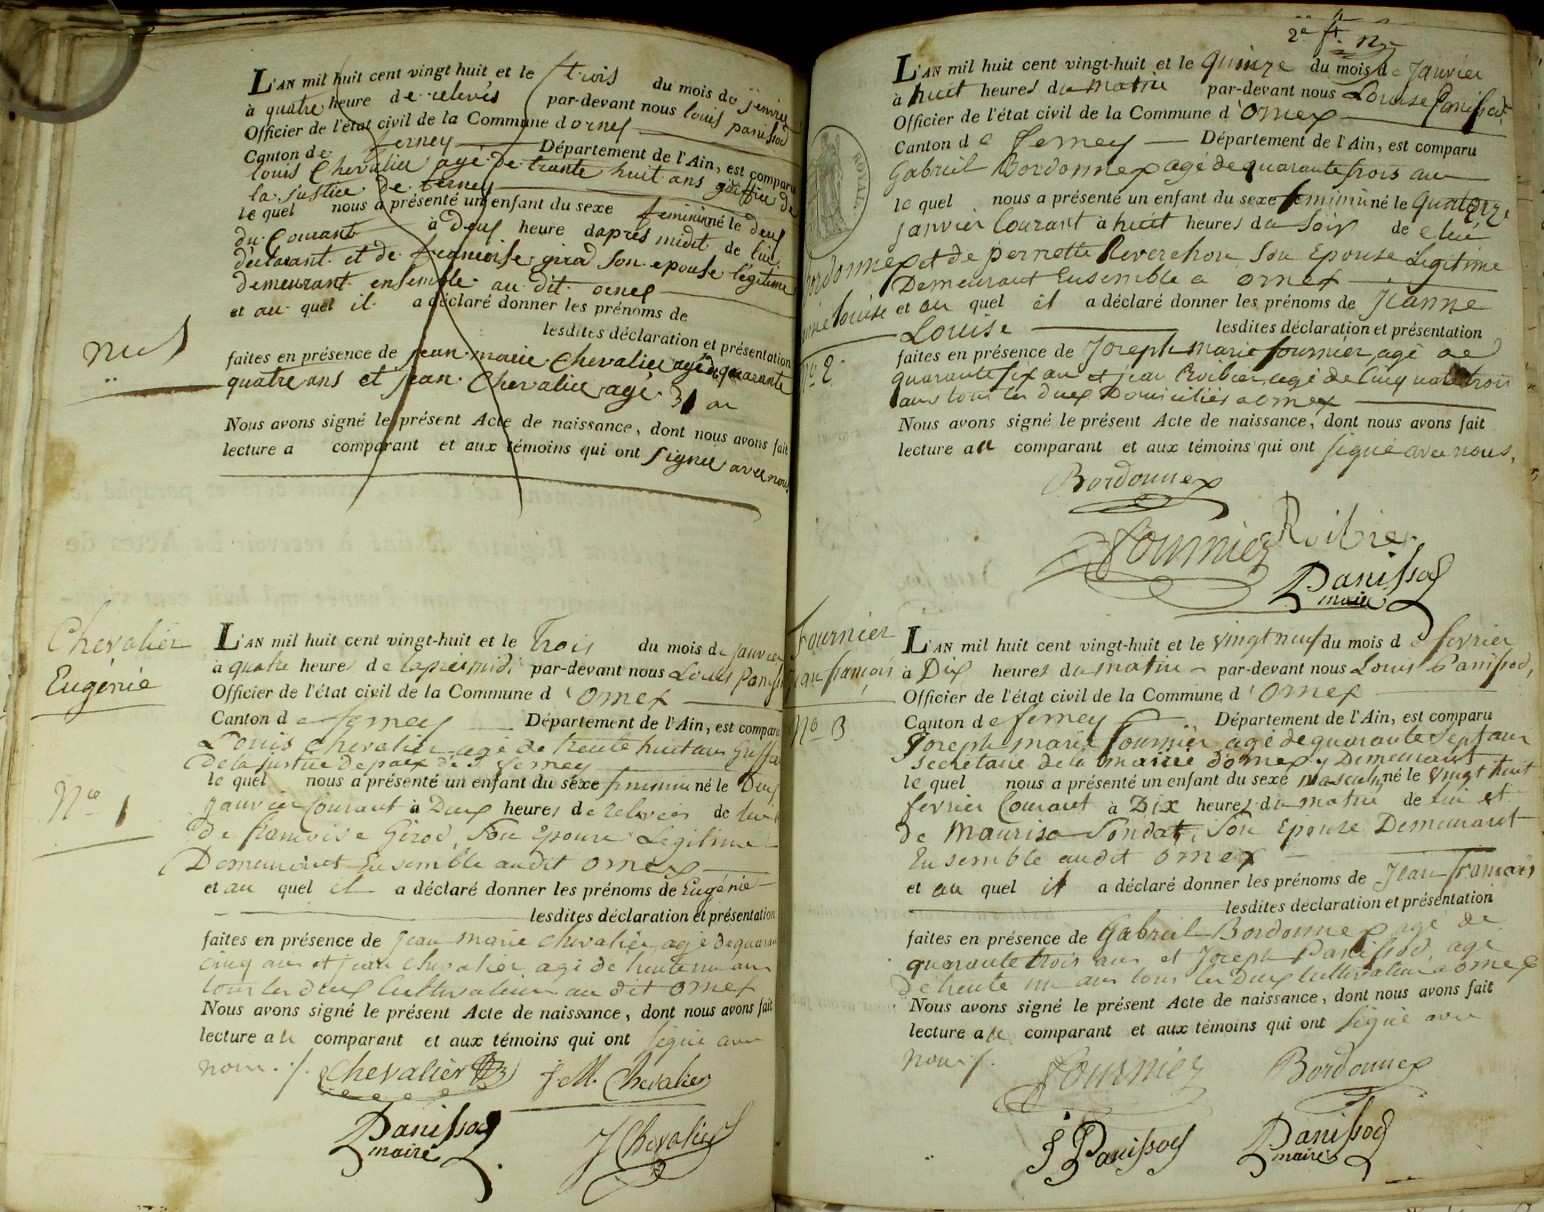 L'AN mil huit cent vingt huit et le trois du mois de jenvier
à quatre heure de relevés par-devant nous louis panissod
Officier de l'état civil de la Commune d ornex
Canton de ferney Département de l'Ain, est comparu
louis Chevalier agé de trante huit ans greffier de
la justice de ferney
le quel nous a présenté un enfant du sexe feminin né le deux
du Courant à Deux heure daprès midit de lui
déclarant et de françoise girod son epouse légitime
demeurant ensemble au dit ornex
et au quel il a déclaré donner les prénoms de
lesdites déclaration et présentation
nul
faites en présence de jean marie Chevalier agé de quarante
quatre ans et jean Chevalier agé 31 an
Nous avons signé le présent Acte de naissance, dont nous avons fait
lecture a comparant et aux témoins qui ont signé avec nous
Chevalier
Eugénie
Nº 1
L'AN mil huit cent vingt-huit et le Trois du mois de janvier
à quatre heures de lapresmidi par-devant nous Louis Panissod
Officier de l'état civil de la Commune d'Ornex
Canton de ferney Département de l'Ain, est comparu
Louis Chevalier agé de trente huit ans Greffier
de la justice de paix de ferney
le quel nous a présenté un enfant du sexe feminin né le Deux
janvier Courant à Deux heures de relevées de lui
de francoise Girod, Son Epouse Legitime
Demeurant Ensemble audit ornex
et au quel il a déclaré donner les prénoms de Eugénie
lesdites déclaration et présentation
faites en présence de jean marie chevalier agé de quarante
cinq ans et jean chevalier agé de trente un ans
tous les deux cultivateurs au dit ornex
Nous avons signé le présent Acte de naissance, dont nous avons fait
lecture au comparant et aux témoins qui ont signé avec
nous ./. Chevalier J. M. Chevalier
Panissod
maire
J Chevalier
2e ft
L'AN mil huit cent vingt-huit et le quinze du mois de Janvier
à huit heures du matin par-devant nous Louise Panissod
Officier de l'état civil de la Commune d'ornex
Canton de ferney Département de l'Ain, est comparu
Gabriel Bordonnex agé de quarante trois ans
le quel nous a présenté un enfant du sexe feminin né le quatorze
janvier Courant à huit heures du Soir de lui
et de pernette Reverchon Son Epouse Legitime
Demeurant Ensemble a ornex
et au quel il a déclaré donner les prénoms de Jeanne
Louise lesdites déclaration et présentation
ROYAL
Bordonnex
Louise
Nº 2
faites en présence de Joseph marie fournier agé de
quarante six an et jean Roibier agé de Cinquante trois
ans tous les deux Domiciliés a ornex
Nous avons signé le présent Acte de naissance, dont nous avons fait
lecture au comparant et aux témoins qui ont signé avec nous.
Bordonnex
fournier Roibier
Panissod
maire
fournier
jean françois
Nº 3
L'AN mil huit cent vingt-huit et le vingt neuf du mois de fevrier
à Dix heures du matin par-devant nous Louis Panissod,
Officier de l'état civil de la Commune d'Ornex
Canton de ferney Département de l'Ain, est comparu
Joseph marie fournier agé de quarante Sept ans
Secretaire de la mairie d'ornex y Demeurant
le quel nous a présenté un enfant du sexe masculin né le vingt huit
fevrier Courant à Dix heures du matin de lui et
de Maurise Sondat, Son Epouse Demeurant
Ensemble audit ornex
et au quel il a déclaré donner les prénoms de Jean françois
lesdites déclaration et présentation
faites en présence de Gabriel Bordonnex agé de
quarante trois ans et Joseph Panissod, agé
de trente un ans tous les Deux Cultivateur a ornex
Nous avons signé le présent Acte de naissance, dont nous avons fait
lecture au comparant et aux témoins qui ont signé avec
nous ./. fournier Bordonnex
J Panissod Panissod
maire